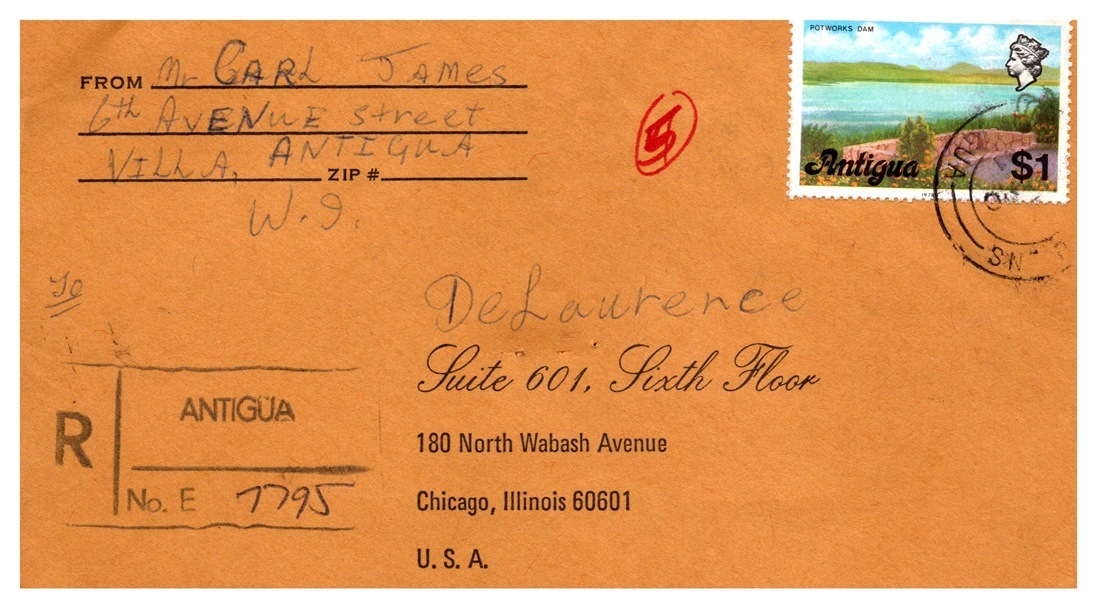 FROM Mr CARL JAMES
6th AVENUE street
VILLA, ANTIGUA
ZIP #
W.I.
5
POTWORKS DAM
Antigua $1
1976
To
DeLaurence
Suite 601, Sixth Floor
180 North Wabash Avenue
Chicago, Illinois 60601
U. S. A.
R
ANTIGUA
No. E 7795